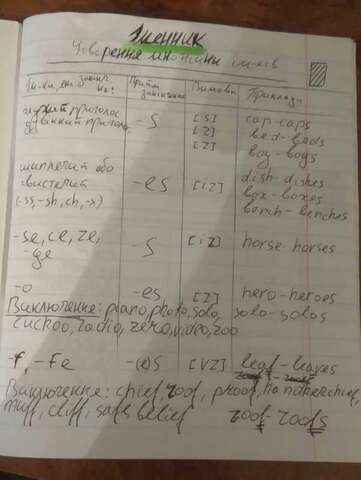 Іменник
Утворення множини ім-ків
Ім-ки, які закінч. на: Прийм закінчення Вимова Приклади
глухий приголос -s [s] cap-caps
дзвінкий приголос. [z] bed-beds
[z] boy-boys
шиплячий або -es [iz] dish-dishes
свистячий box-boxes
(-ss, -sh, ch, -x) bench-benches
-se, ce, ze, -s [iz] horse-horses
-ge
-o -es [z] hero-heroes
Виключення: piano, photo, solo, solo-solos
cuckoo, radio, zero, video, zoo
-f, -fe -(e)s [vz] leaf-leaves
Виключення: chief, roof, proof, handkerchief,
muff, cliff, safe, belief roof-roofs